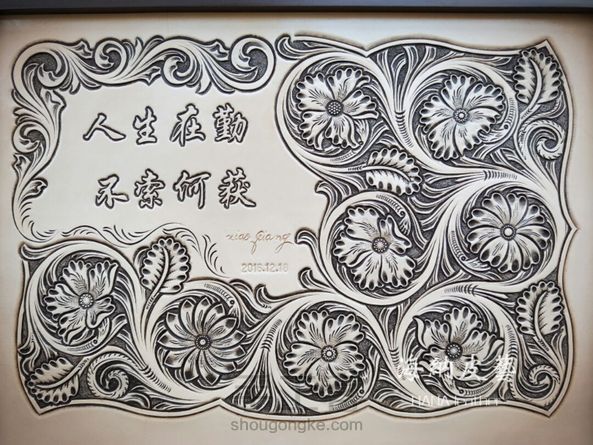 人生在勤
不索何获
xiao qiang
2016.12.18
海纳皮艺
HANA leather
shougongke.com